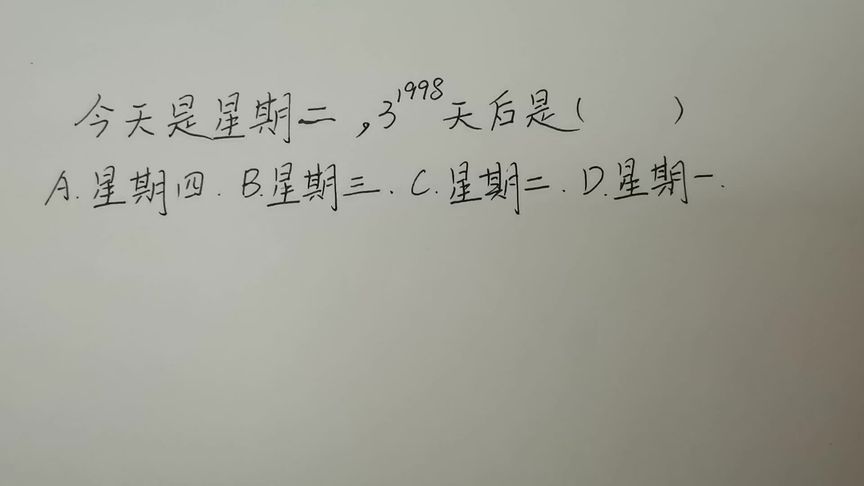 今天是星期二，3¹⁹⁹⁸天后是(　　)
A.星期四. B.星期三. C.星期二. D.星期一.